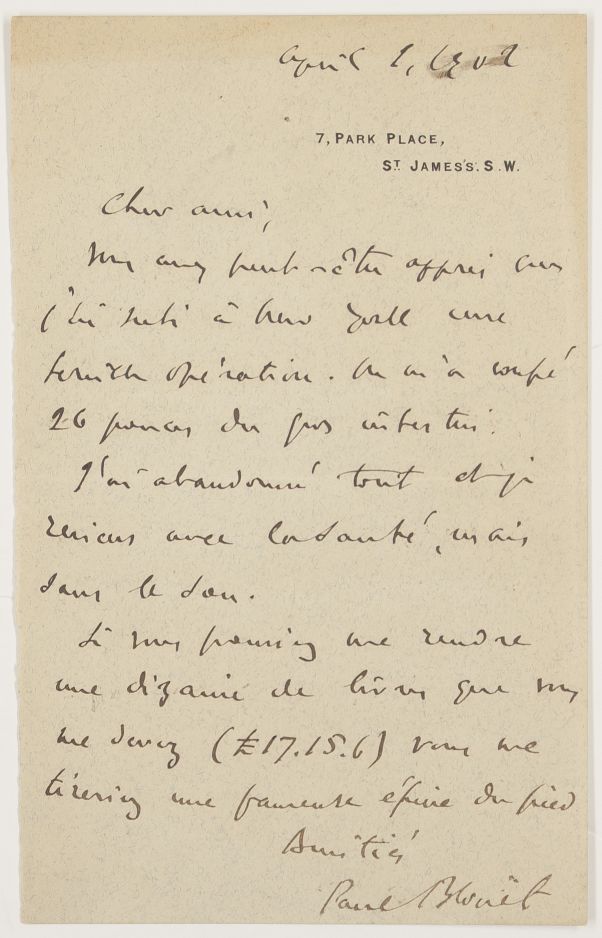 April 1, 1902
7, PARK PLACE,
ST JAMES'S. S.W.
Cher ami,
Vous avez peut-être appris que
j'ai subi à New York une
terrible opération. On m'a coupé
26 pouces du gros intestin.
J'ai abandonné tout et je
reviens avec la santé, mais
sans le sou.
Si vous pouviez me rendre
une dizaine de livres que vous
me devez (£17.15.6) vous me
tireriez une fameuse épine du pied
Amitiés
Paul Blouët